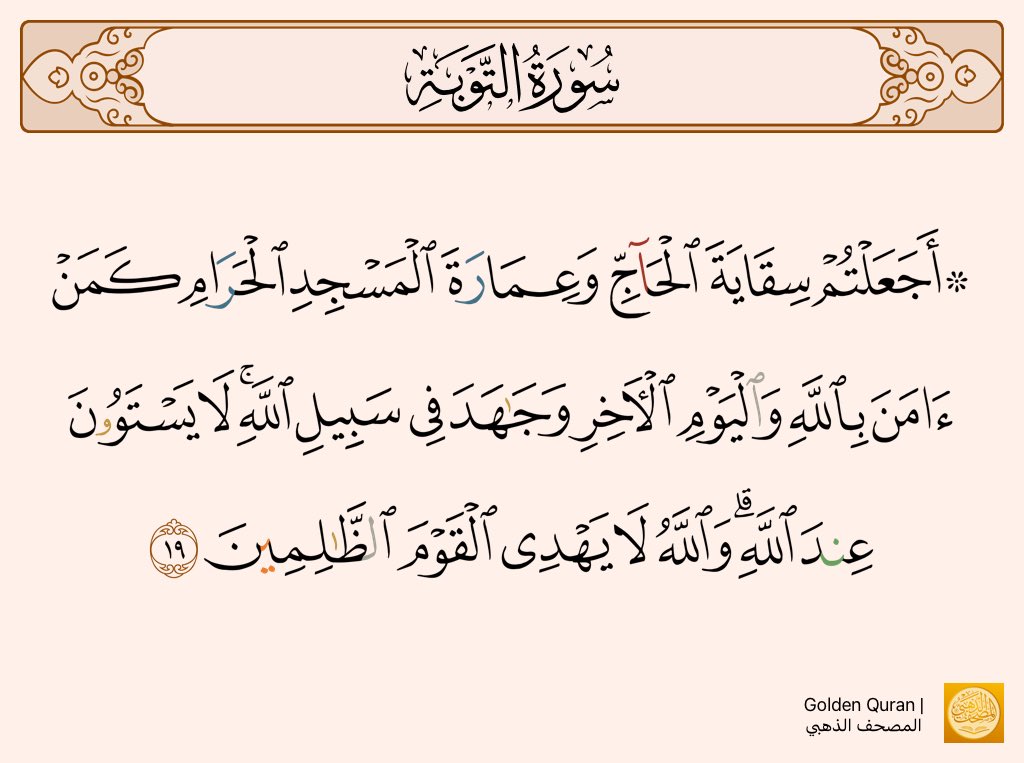 سُورَةُ التَّوْبَةِ
۞ أَجَعَلْتُمْ سِقَايَةَ ٱلْحَآجِّ وَعِمَارَةَ ٱلْمَسْجِدِ ٱلْحَرَامِ كَمَنْ
ءَامَنَ بِٱللَّهِ وَٱلْيَوْمِ ٱلْـَٔاخِرِ وَجَـٰهَدَ فِى سَبِيلِ ٱللَّهِ ۚ لَا يَسْتَوُۥنَ
عِندَ ٱللَّهِ ۗ وَٱللَّهُ لَا يَهْدِى ٱلْقَوْمَ ٱلظَّـٰلِمِينَ ١٩
Golden Quran |
المصحف الذهبي
المصحف الذهبي